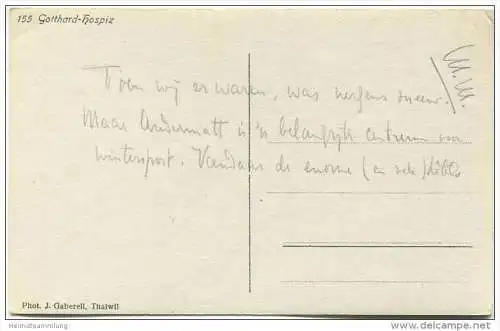 155 Gotthard-Hospiz
Toen wij er waren, was nergens sneeuw.
Maar Andermatt is 'n belangrijk centrum voor
wintersport. Vandaar de enorme (en vele)
Phot. J. Gaberell, Thalwil
Heimatsammlung
www.delcampe.net